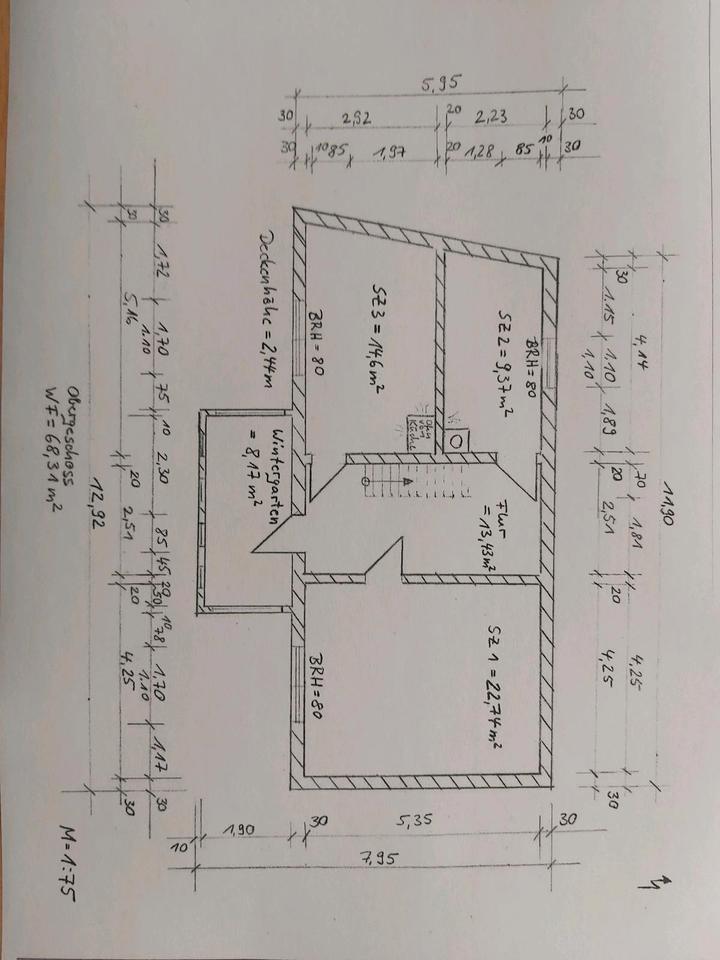 5,95
30
2,92
20
2,23
30
30
10
85
1,97
20
1,28
85
10
30
Deckenhöhe = 2,44m
BRH = 80
SZ 3 = 14,6 m²
SZ 2 = 9,37 m²
BRH = 80
Wintergarten
= 8,17 m²
Flur
= 13,43 m²
SZ 1 = 22,74 m²
BRH = 80
30
1,72
1,70
1.10
75
10
2,30
85
45
20
30
10
78
1,70
1.10
1,17
30
30
5,16
20
2,51
20
4,25
30
12,92
Obergeschoss
WF = 68,31 m²
30
1.15
1.10
1,10
1,89
20
2,51
20
4,25
30
4,14
70
1,81
4,25
11,90
10
1,90
30
5,35
30
7,95
M = 1:75